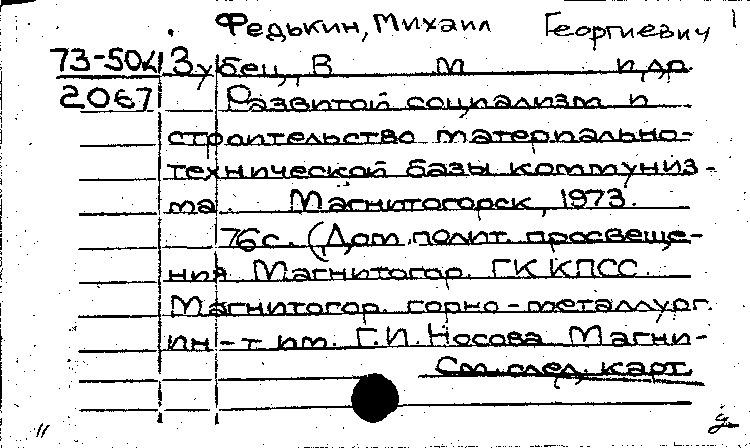 Федькин, Михаил Георгиевич
73-504 Зубец, В М и др.
2067 Развитой социализм и
строительство материально-
технической базы коммуниз-
ма. Магнитогорск, 1973.
76с. (Дом полит. просвеще-
ния Магнитогор. ГК КПСС.
Магнитогор. горно-металлург.
ин-т им. Г.И. Носова Магни-
См. след. карт.